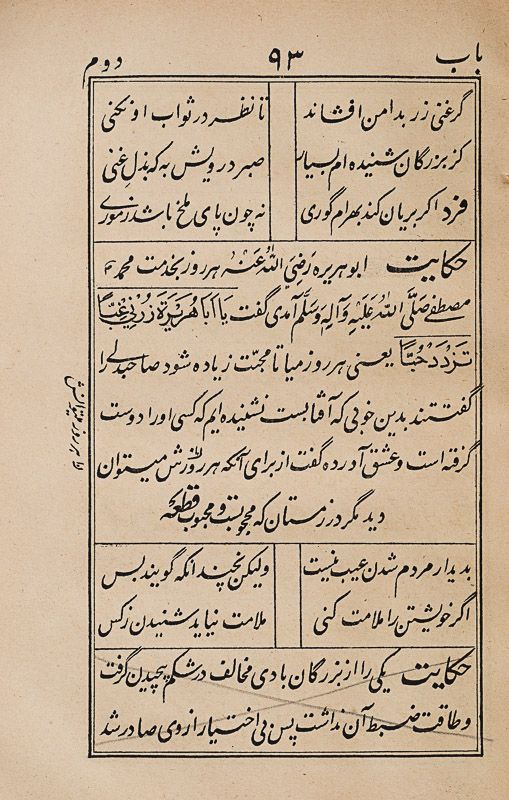 باب ۹۳ دوم
گر غنی زر بدامن افشاند تا نظر در ثواب او نکنی
کز بزرگان شنیده ام بسیار صبر درویش به که بذل غنی
فرد اگر بریان کند بهرام گوری نه چون پای ملخ باشد ز موری
حکایت ابو هریره رَضِیَ اللهُ عَنهُ هر روز بخدمت محمد
مصطفی صَلَّی اللهُ عَلَیْهِ وَآلِهِ وَسَلَّم آمدی گفت یَا اَبَا هُرَیْرَةَ زُرْنِی غِبًّا
تَزْدَدْ حُبًّا یعنی هر روز میا تا محبت زیاده شود صاحبدلی را
گفتند بدین خوبی که آفتابست نشنیده ایم که کسی او را دوست
گرفته است و عشق آورده گفت از برای آنکه هر روزش میتوان
دید مگر در زمستان که محجوبست و محبوب قطعه
بدیدار مردم شدن عیب نیست ولیکن نچندانکه گویند بس
اگر خویشتن را ملامت کنی ملامت نباید شنیدن ز کس
حکایت یکی را از بزرگان بادی مخالف در شکم پیچیدن گرفت
و طاقت ضبط آن نداشت پس بی اختیار از وی صادر شد